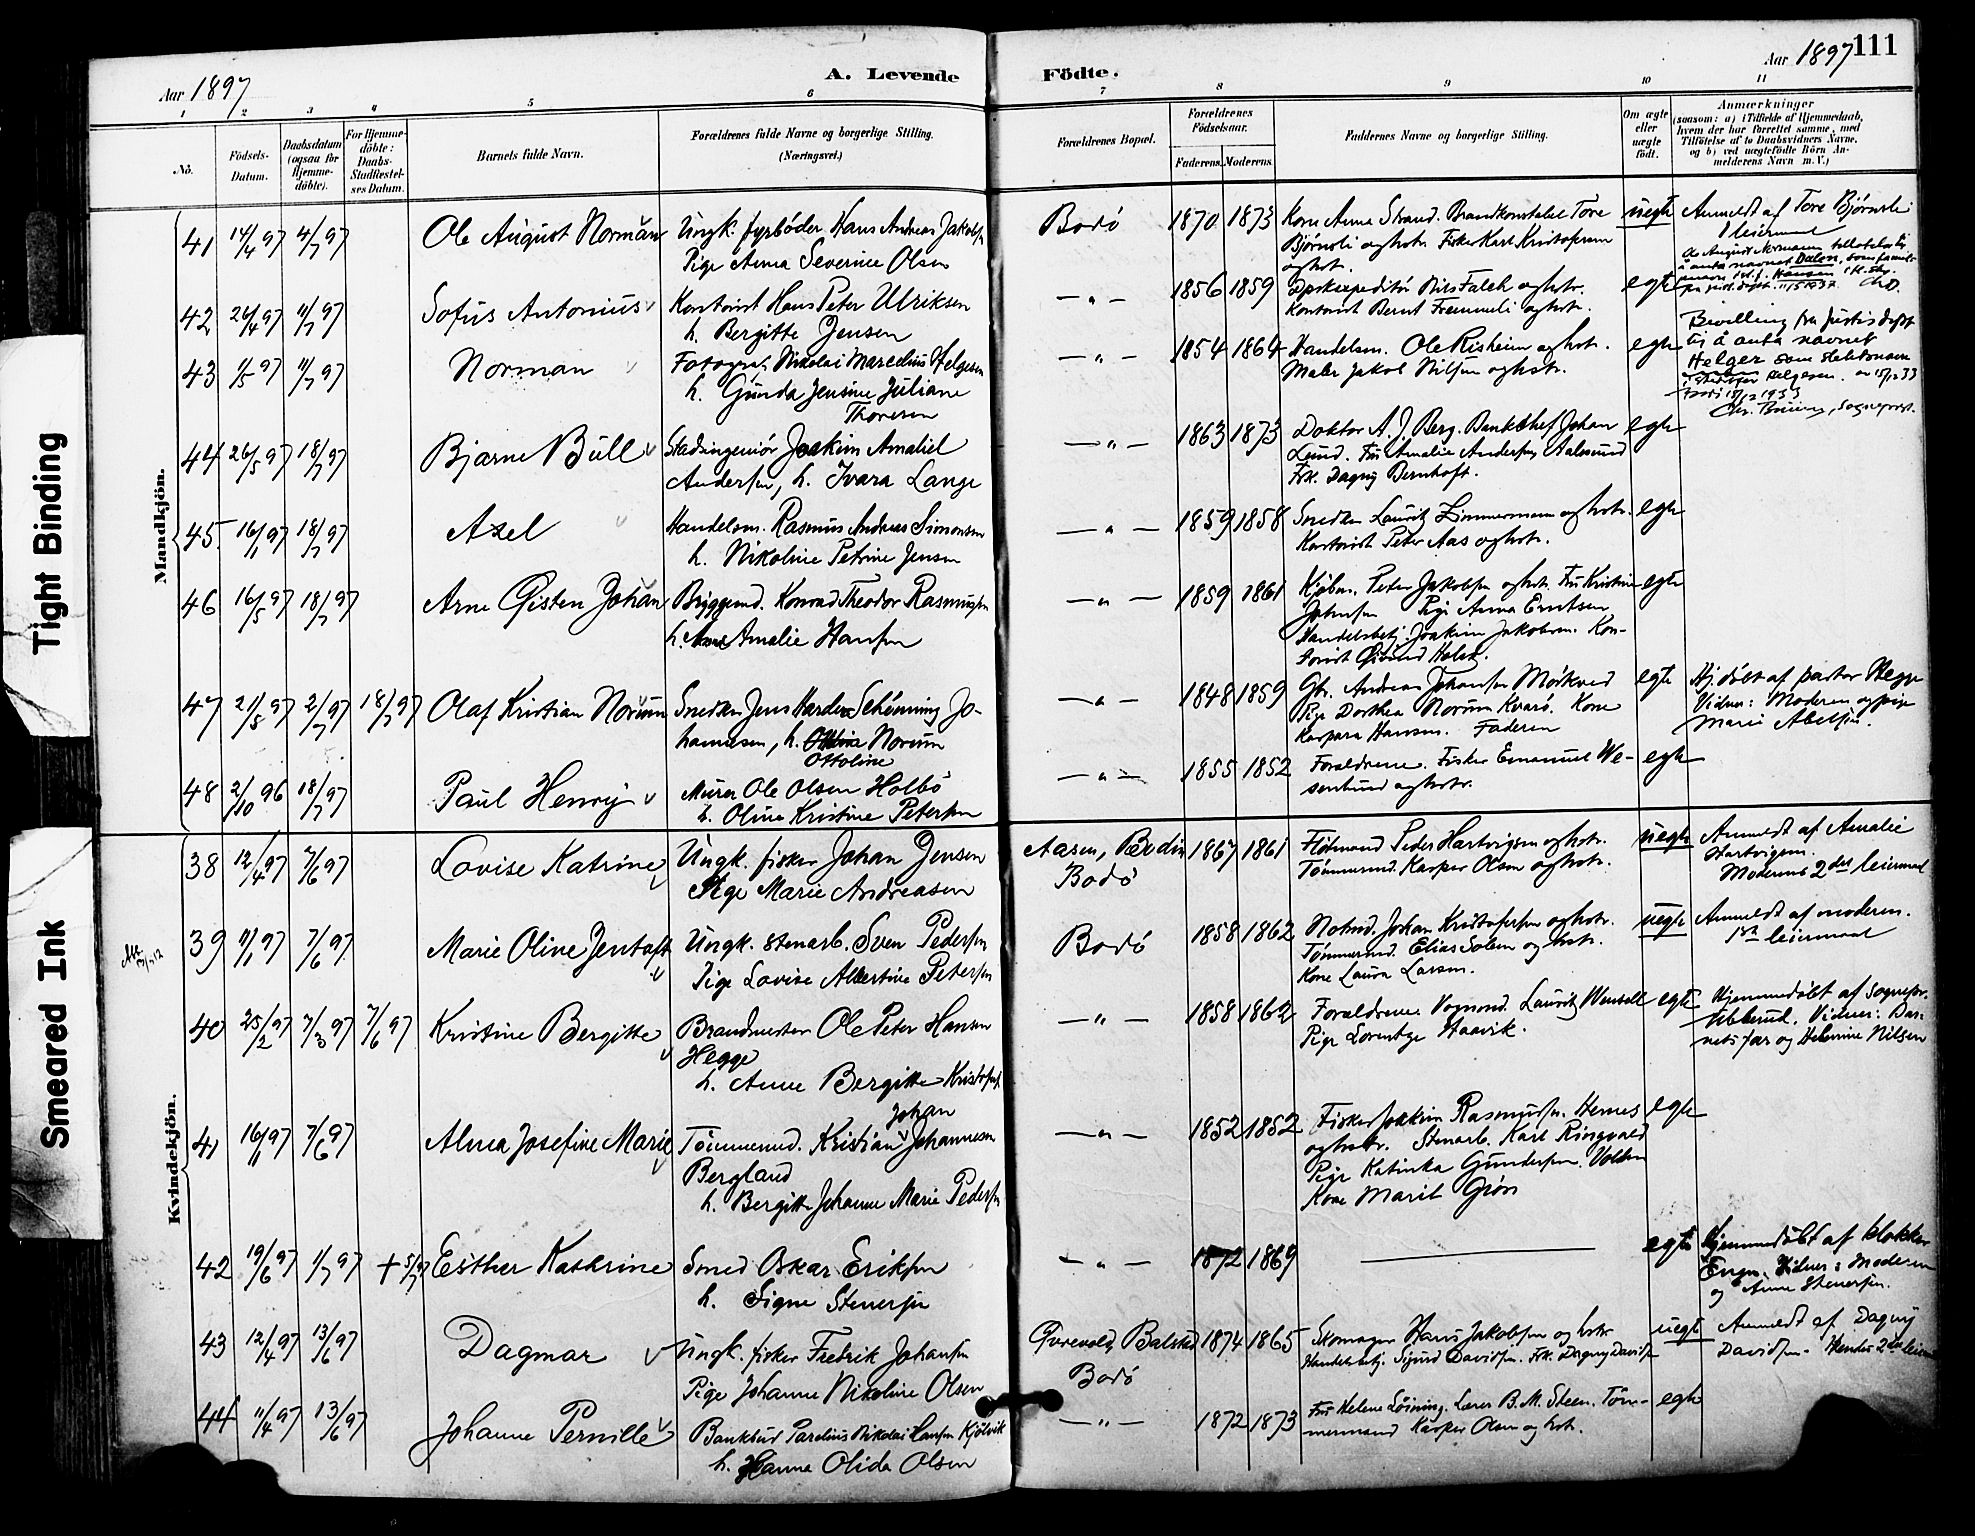 Tight Binding
Smeared Ink
Aar 1897
A. Levende
Födte.
Aar 1897
111
1 2 3 4 5 6 7 8 9 10 11
No.
Födsels-
Datum.
Daabsdatum
(ogsaa for
Hjemme-
döbte).
For Hjemme-
döbte:
Daabs-
Stadfæstel-
ses Datum.
Barnets fulde Navn.
Forældrenes fulde Navne og borgerlige Stilling.
(Næringsvei.)
Forældrenes Bopæl.
Forældrenes
Födselsaar.
Faderens. Moderens.
Faddernes Navne og borgerlige Stilling.
Om ægte
eller
uægte
födt.
Anmærkninger
(saasom: a) i Tilfælde af Hjemmedaab,
hvem der har forrettet samme, med
Tilföielse af to Daabsvidners Navne,
og b) ved uægtefödte Börn An-
melderens Navn m. V.)
Mandkjön.
41 14/4 97 4/7 97 Ole August Norman
Ungk. fyrbøder Hans Andreas Jakobsen
Pige Anna Severine Olsen
Bodö 1870 1873
Kone Anna Strand. Brandkonstabel Tore
Bjørnli og hstr. Fisker Karl Kristofersen
og hstr.
uegte
Anmeldt af Tore Bjørnli
1 leiermaal
42 26/4 97 11/7 97 Sofus Antonius
Kontorist Hans Peter Ulriksen
h. Bergitte Jensen
— „ — 1856 1859
Expeditör Nils Falch og hstr.
Kontorist Bernt Fremmeli og hstr.
egte
43 1/5 97 11/7 97 Norman
Fotograf Nikolai Marcelius Helgesen
h. Gunda Jensine Juliane
Thoresen
— „ — 1854 1864
Handelsm. Ole Risheim og hstr.
Maler Jakob Nilsen og hstr.
egte
Bevilling fra Justisdept
til å anta navnet
Helger som slektsnavn
istedetfor Helgesen. av 15/12 33
Bodö 18/12 1933
44 26/5 97 18/7 97 Bjarne Bull
Stadsingeniör Joakim Amaliel
Andersen, h. Ivara Lange
— „ — 1863 1873
Doktor A. J. Berg. Bankchef Johan
Lund. Fru Amalie Andersen Aalesund
Frk. Dagny Bernhoft.
egte
45. 16/1 97 18/7 97 Axel
Handelsm. Rasmus Andreas Simonsen
h. Nikoline Petrine Jensen
— „ — 1859 1858
Snedker Lauritz Zimmermann og hstr.
Kontorist Peter Aas og hstr.
egte
46 16/5 97 18/7 97 Arne Gisten Johan
Bryggemd. Konrad Theodor Rasmussen
h. Amalie Hansen
— „ — 1859 1861
Kjøbm. Peter Jakobsen og hstr. Fru Kristine
Johnsen Pige Anna Erntsen
Handelsbetj. Joakim Jakobsen. Kon-
torist Øivind Holst.
egte
47 21/5 97 2/7 97 18/7 97 Olaf Kristian Norum
Snedker Jens Harder Schönning Jo-
hannesen, h. Norum
Ottoline
— „ — 1848 1859
Gbr. Andreas Johansen Mörkved
Pige Dorthea Norum Kvarö. Kone
Kaspara Hansen. Faderen
egte
Hjdöbt af pastor Hegge
Vidner: Moderen og pige
Marie Abelsen.
48 2/10 96 18/7 97 Paul Henry
Murer Ole Olsen Holbö
h. Oline Kristine Petersen
— „ — 1855 1852
Forældrene. Fisker Emanuel We-
senlund og hstr.
egte
Kvindekjön.
38 12/4 97 7/6 97 Lovise Katrine
Ungk. fisker Johan Jensen
Pige Marie Andreasen
Aasen, Bodin
Bodö
1867 1861
Flötmand Peder Hartvigsen og hstr.
Tömmermd. Kasper Olsen og hstr.
uegte
Anmeldt af Amalie
Hartvigsen.
Moderens 2det leiermaal
39 11/1 97 7/6 97 Marie Oline Jentoft
Ungk. stenarb. Sven Pedersen
Pige Lovise Albertine Petersen
Bodö 1858 1862
Notmd. Johan Kristofersen og hstr.
Tömmermd. Elias Solem og hstr.
Kone Laura Larsen.
uegte
Anmeldt af moderen.
1ste leiermaal
40 25/2 97 7/3 97 7/6 97 Kristine Bergitte
Brandmester Ole Peter Hansen
Hegge
h. Anne Bergitte Kristofersen
— „ — 1858 1862
Forældrene. Vognmd. Lauritz Wensell
Pige Lorentze Haavik.
egte
Hjemmedöbt af Sognepr.
Ubberud. Vidner: Bar-
nets far og Helmine Nilsen
41 16/11 97 7/6 97 Alma Josefine Marie
Johan
Tömmermd. Kristian Johannesen
Bergland
h. Bergitte Johanne Marie Pedersen
— „ — 1852 1852
Fisker Joakim Rasmussen Hernes
og hstr. Stenarb. Karl Ringvald
Pige Katinka Gundersen Volden
Kone Marit Grön
egte
42 19/6 97 1/7 97 + 5/7 97 Esther Kathrine
Smed Oskar Eriksen
h. Signe Stenersen
— „ — 1872 1869
egte
Hjemmedöbt af klokker
Engen. Vidner: Moderen
og Anne Stenersen.
43 12/4 97 13/6 97 Dagmar
Ungk. fisker Fredrik Johansen
Pige Johanne Nikoline Olsen
Balstad
Bodö
1874 1865
Skomager Hans Jakobsen og hstr
Handelsbetj. Sigurd Davidsen. Frk. Dagny Davidsen
uegte
Anmeldt af Dagny
Davidsen. Hendes 2det leierm.
44 11/4 97 13/6 97 Johanne Pernille
Bankbud Parelius Nikolai Hansen Kjölvik
h. Hanna Olida Olsen
— „ — 1872 1873
Fru Helene Löining. Lærer B. M. Steen. Töm-
mermand Kasper Olsen og hstr.
egte